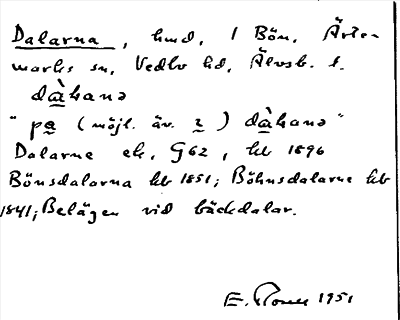 Dalarna, hmd, 1 Bön, Ärte-
marks sn, Vedbo hd, Älvsb. l.
dàhanə
"pa (möjl. äv. ) dàhanə"
Dalarne ek, G62, kb 1896
Bönsdalarna kb 1851; Böhnsdalarne kb
1841; Belägen vid bäckdalar.
E. 1951